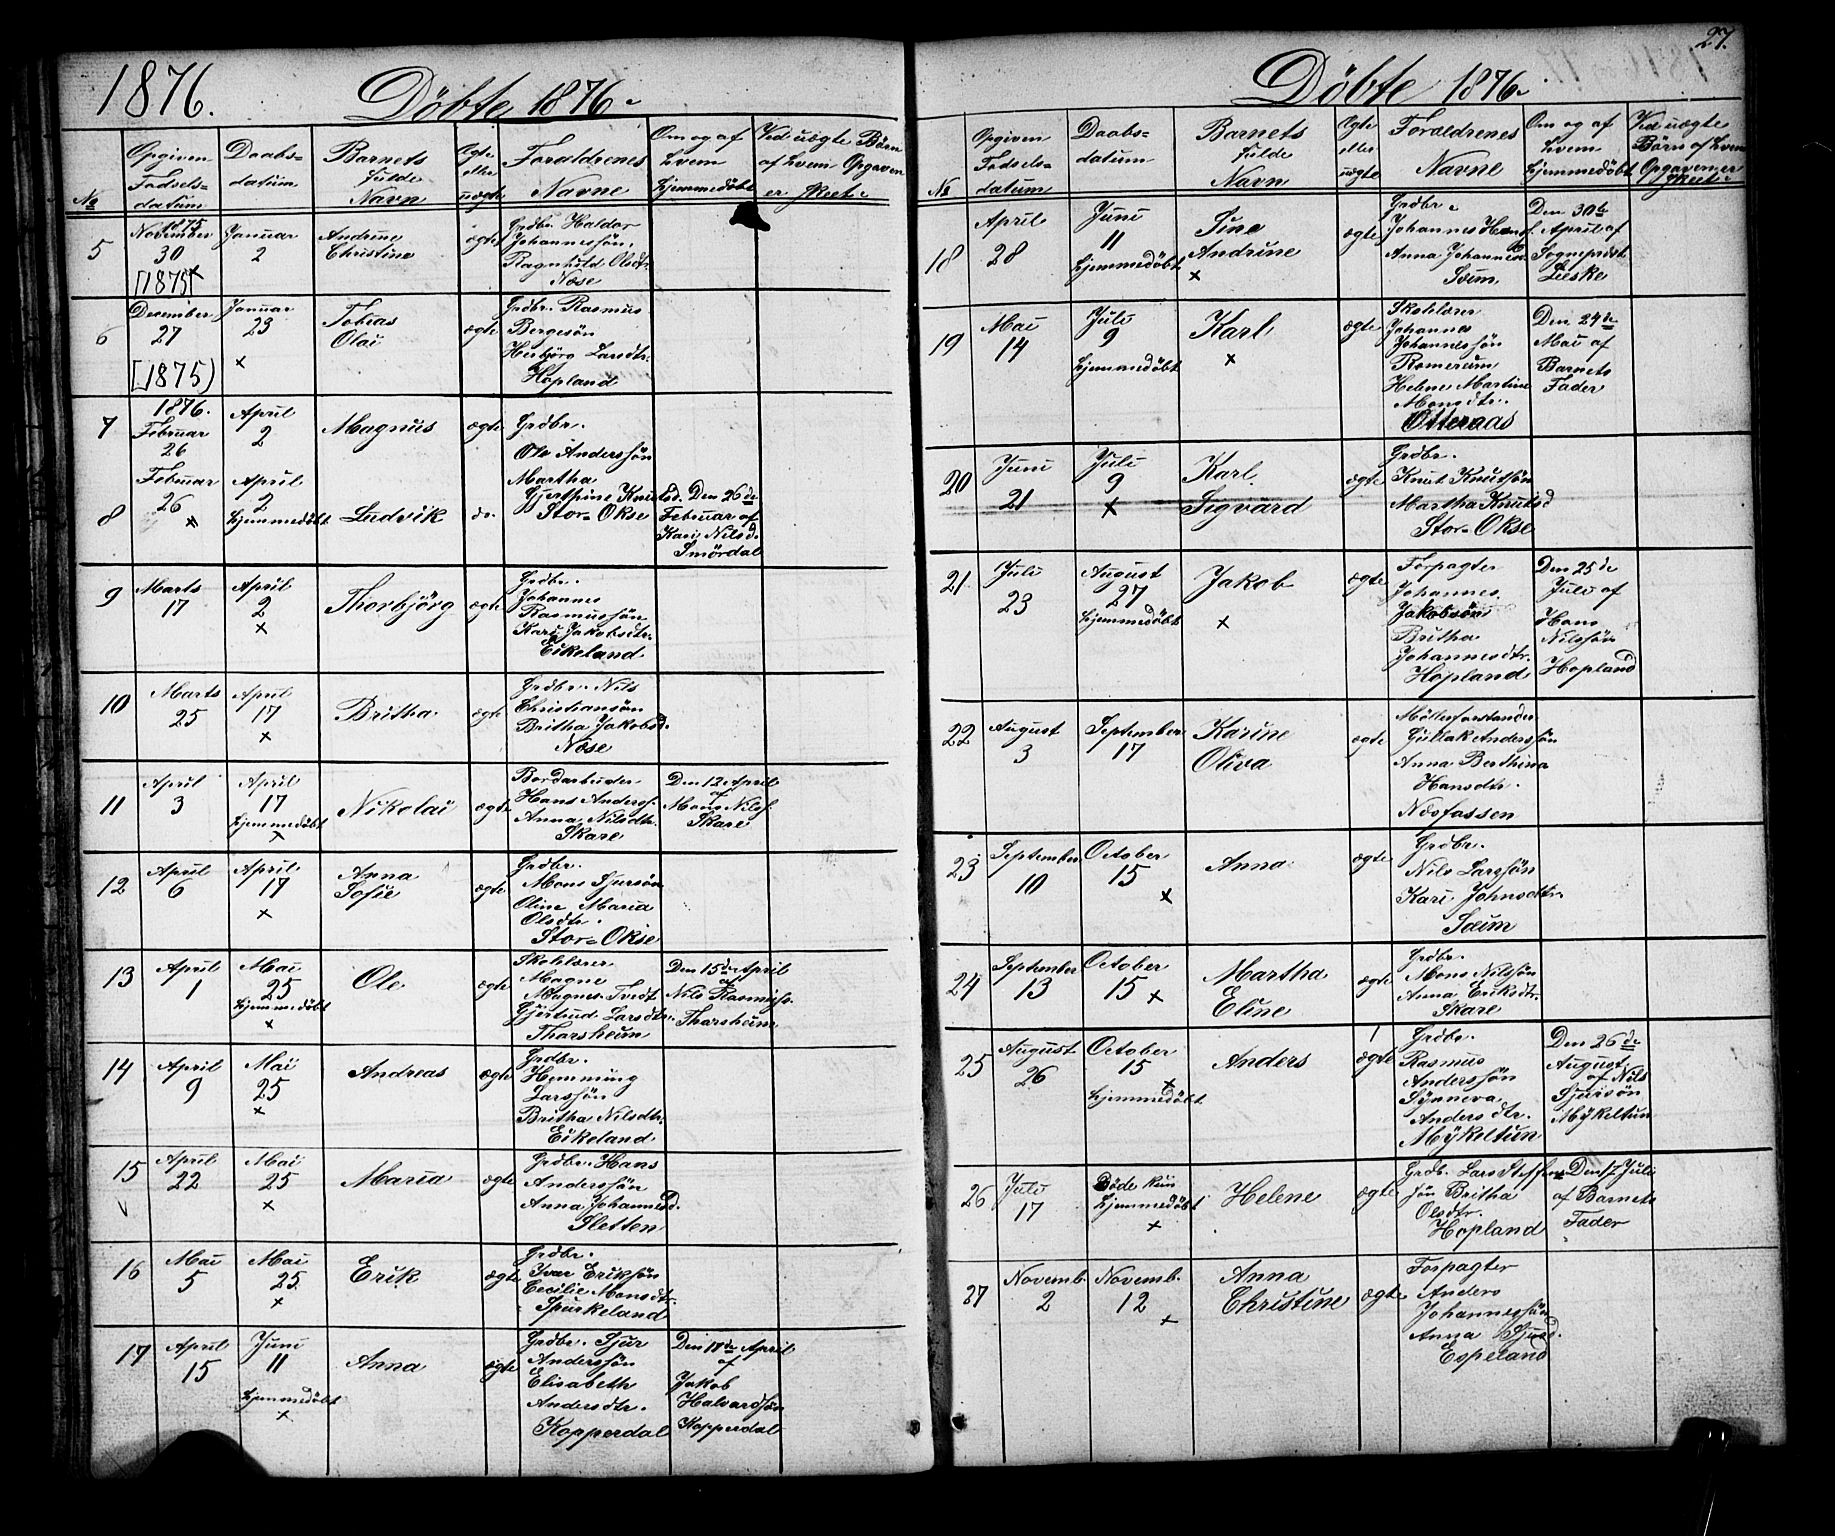 1876.
Döbte 1876.
No
Opgiven Fødsels-datum
Daabs-datum
Barnets fulde Navn
Ægte eller uægte
Forældrenes Navne
Om og af hvem hjemmedöbt
Ved uægte Börn af hvem Opgaven er skeet.
5
1875 November 30 [1875]
Januar 2
Andrine Christine
ægte
Grdbr. Haldor Johannessön, Ragnhild Olsdtr. Næse
6
Desember 27 [1875)
Januar 23 x
Tobias Olai
ægte
Grdbr. Rasmus Bergesön Herbjörg Larsdtr. Hopland
7
1876. Februar 26
April 2
Magnus
ægte
Grdbr. Ole Anderssön Martha Gjerthine Knutsd. Stor-Okse
8
Februar 26 x
April 2 hjemmedöbt
Ludvik
do.
Den 26de Februar af Kari Nilsd. Smördal
9
Marts 17
April 2 x
Thorbjörg
ægte
Grdbr. Johannes Rasmussön Kari Jakobsdtr. Eikeland
10
Marts 25
April 17 x
Britha
ægte
Grdbr. Nils Christiansön Britha Jakobsd. Næse
11
April 3
April 17 hjemmedöbt x
Nikolai
ægte
Bordarbeider Hans Anderss. Anna Nilsdtr. Skare
Den 12 April af Mons Nilss. Skare
12
April 6
April 17 x
Anna Sofie
ægte
Grdbr. Mons Sjursön Oline Maria Olsdtr. Stor-Okse
13
April 1
Mai 25 hjemmedöbt x
Ole
ægte
Skolelærer Magne Magnes. Tvedt Gjertrud Larsdtr. Tharsheim
Den 15de April af Nils Rasmuss. Tharsheim
14
April 9
Mai 25 x
Andreas
ægte
Grdbr. Hemming Larssön Britha Nilsdtr. Eikeland
15
April 22
Mai 25 x
Maria
ægte
Grdbr. Hans Anderssön Anna Johannesd. Sletten
16
Mai 5
Mai 25 x
Erik
ægte
Grdbr. Ivar Eriksön Cecilie Monsdtr. Spurkeland
17
April 15
Juni 11 hjemmedöbt x
Anna
ægte
Grdbr. Sjur Anderssön Elisabeth Andersdtr. Kopperdal
Den 17de April af Jakob Halvardsön Kopperdal
27.
Döbte 1876.
No
Opgiven Fødsels-datum
Daabs-datum
Barnets fulde Navn
Ægte eller uægte
Forældrenes Navne
Om og af hvem hjemmedöbt
Ved uægte Börn af hvem Opgaven er skeet
18
April 28
Juni 11 hjemmedöbt
Sine Andrine x
ægte
Grdbr. Johannes Hansf. Anna Johannesd. Sæim
Den 30te April af Sogneprest Leeske
19
Mai 14
Juli 9 hjemmedöbt
Karl x
ægte
Skolelærer Johannes Johannessön Romereim Helene Martine Monsdtr. Otteraas
Den 24de Mai af Barnets Fader
20
Juni 21
Juli 9 x
Karl Sigvard
ægte
Grdbr. Knut Knutsön Martha Knutsd Stor-Okse
21
Juli 23
August 27 hjemmedöbt
Jakob x
ægte
Forpagter Johannes Jakobsön Britha Johannesdtr. Hopland
Den 25de Juli af Hans Nilssön Hopland
22
August 3
September 17
Karine Oliva
ægte
Möllerforstander Gullak Anderssön Anna Berthina Hansdtr. Næsfassen
23
September 10
October 15 x
Anna
ægte
Grdbr. Nils Larssön Kari Johnsdtr. Sæim
24
September 13
October 15 x
Martha Eline
ægte
Grdbr. Mons Nilssön Anna Eriksdtr. Skare
25
August 26
October 15 x hjemmedöbt
Anders
ægte
Grdbr. Rasmus Anderssön Synneva Andersdtr. Mykeltun
Den 26de August af Nils Sjursön Mykeltun
26
Juli 17
Döde kun hjemmedöbt x
Helene
ægte
Grdb. Lars Steffensön Britha Olsdtr. Hopland
Den 17 Juli af Barnets Fader
27
Novemb. 2
Novemb. 12 x
Anna Christine
ægte
Forpagter Anders Johannessön Anna Sjusd. Espeland